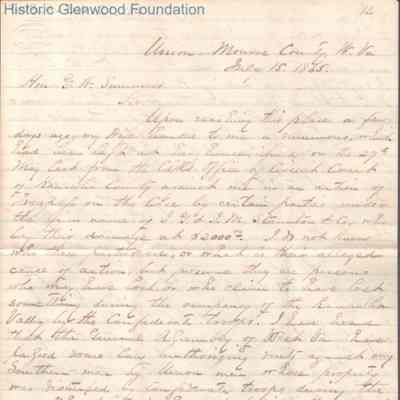 Historic Glenwood Foundation
Union Monroe County, W. Va
July 15. 1865.
Hon. G. W. Summers
Sir
Upon reaching this place a few
days ago, my Wife handed to me a summons, which
had been
on the 27th
May last from the Clerks Office of Circuit Court
of Kanawha County against me in an action of
Trespass on the Case by certain parties under
the firm name of
& Co, who
lay their damages at $2000.00. I do not know
who these parties are, or what is their alleged
cause of action, but presume they are persons
who may have lost, or who claim to have lost
something during the occupancy of the Kanawha
Valley by the Confederate troops. I have heard
that the General Assembly of West Va. have
passed some law authorizing suits against any
Southern man by Union men whose property
was
by Confederate troops during the